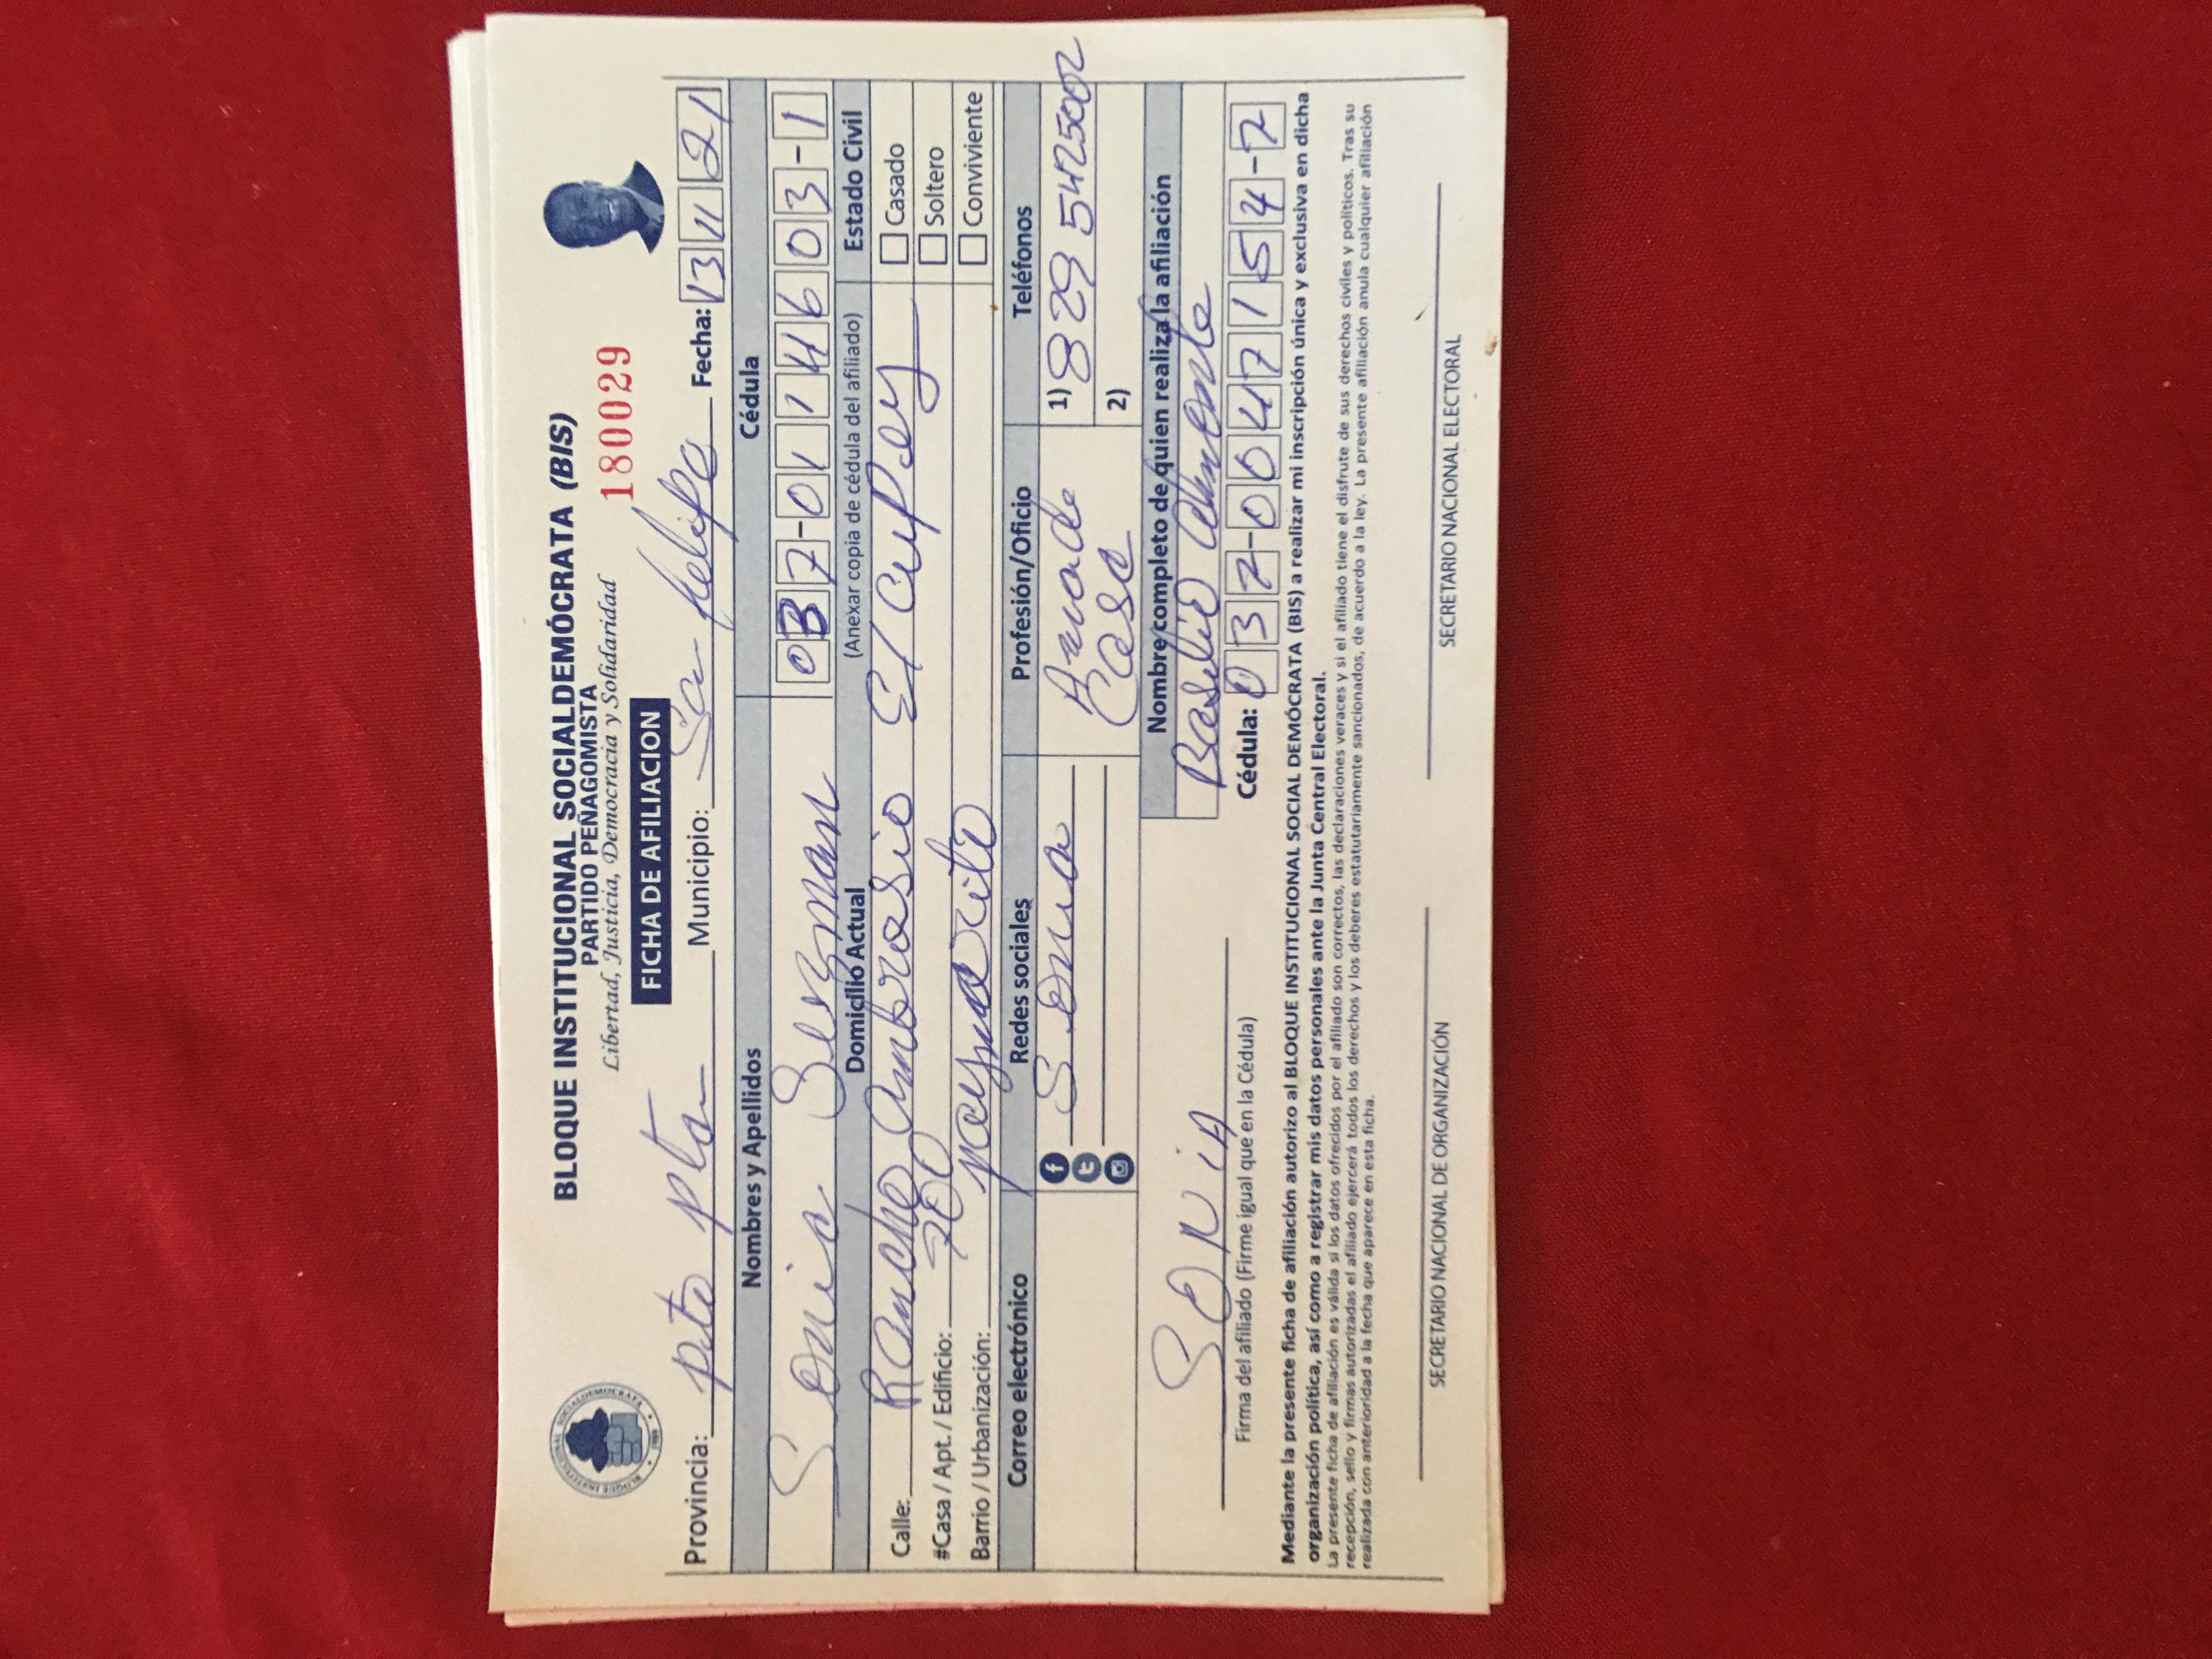 BLOQUE INSTITUCIONAL SOCIALDEMÓCRATA (BIS)
PARTIDO PEÑAGOMISTA
Libertad, Justicia, Democracia y Solidaridad
180029
FICHA DE AFILIACION
Provincia: pto pta Municipio: Sa felipe Fecha: 13 11 21
Nombres y Apellidos Cédula
Sonia 037-0114603-1
Domicilio Actual (Anexar copia de cédula del afiliado) Estado Civil
Calle: Rancho Ambrosio El Cupey Casado
#Casa / Apt. / Edificio: 700 Soltero
Barrio / Urbanización: Conviviente
Correo electrónico Redes sociales Profesión/Oficio Teléfonos
Sonia Ama de 1) 829 5425002
Casa 2)
Nombre completo de quien realiza la afiliación
SONIA Basilio
Firma del afiliado (Firme igual que en la Cédula) Cédula: 037-0047154-7
Mediante la presente ficha de afiliación autorizo al BLOQUE INSTITUCIONAL SOCIAL DEMÓCRATA (BIS) a realizar mi inscripción única y exclusiva en dicha
organización política, así como a registrar mis datos personales ante la Junta Central Electoral.
La presente ficha de afiliación es válida si los datos ofrecidos por el afiliado son correctos, las declaraciones veraces y si el afiliado tiene el disfrute de sus derechos civiles y políticos. Tras su
recepción, sello y firmas autorizadas el afiliado ejercerá todos los derechos y los deberes estatutariamente sancionados, de acuerdo a la ley. La presente afiliación anula cualquier afiliación
realizada con anterioridad a la fecha que aparece en esta ficha.
SECRETARIO NACIONAL DE ORGANIZACIÓN SECRETARIO NACIONAL ELECTORAL